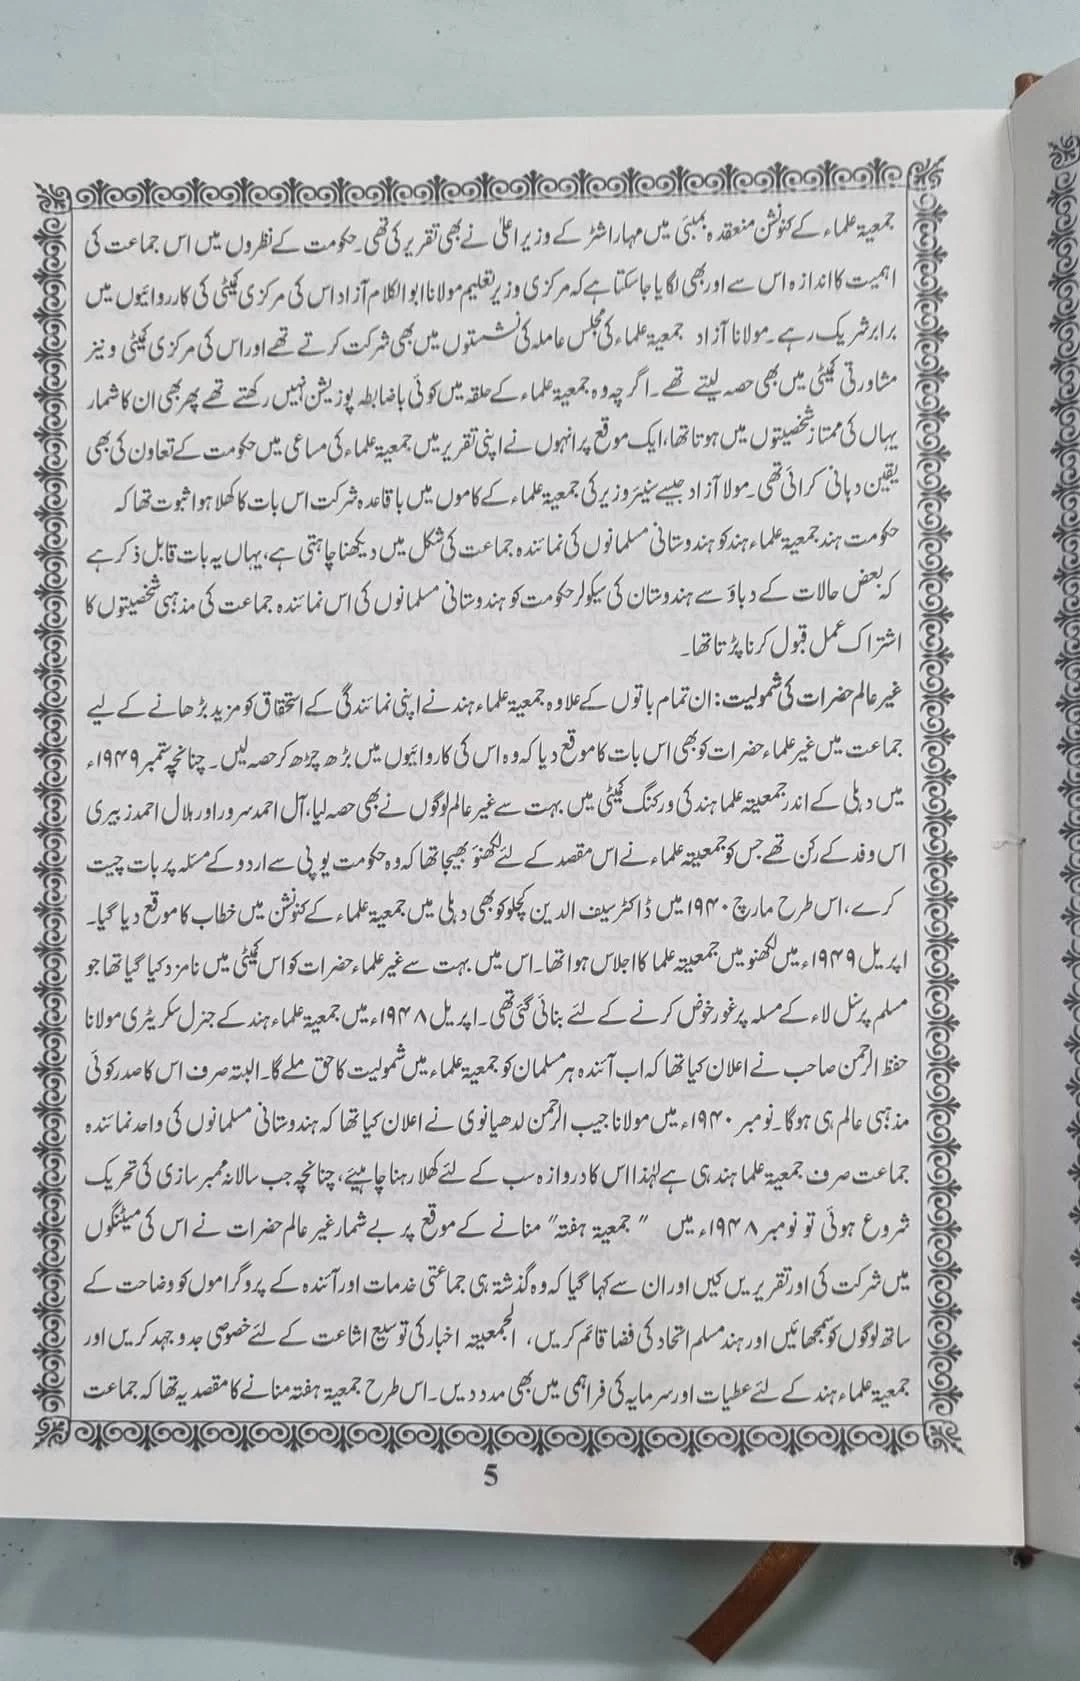 جمعیۃ علماء کے کنونشن منعقدہ بمبئی میں مہاراشٹر کے وزیر اعلیٰ نے بھی تقریر کی تھی۔ حکومت کے نظروں میں اس جماعت کی
اہمیت کا اندازہ اس سے اور بھی لگایا جاسکتا ہے کہ مرکزی وزیر تعلیم مولانا ابوالکلام آزاد اس کی مرکزی کمیٹی کی کارروائیوں میں
برابر شریک رہے۔ مولانا آزاد جمعیۃ علماء کی مجلس عاملہ کی نشستوں میں بھی شرکت کرتے تھے اور اس کی مرکزی کمیٹی و نیز
مشاورتی کمیٹی میں بھی حصہ لیتے تھے۔ اگرچہ وہ جمعیۃ علماء کے حلقہ میں کوئی باضابطہ پوزیشن نہیں رکھتے تھے پھر بھی ان کا شمار
یہاں کی ممتاز شخصیتوں میں ہوتا تھا، ایک موقع پر انہوں نے اپنی تقریر میں جمعیۃ علماء کی مساعی میں حکومت کے تعاون کی بھی
یقین دہانی کرائی تھی۔ مولا آزاد جیسے سینئر وزیر کی جمعیۃ علماء کے کاموں میں باقاعدہ شرکت اس بات کا کھلا ہوا ثبوت تھا کہ
حکومت ہند جمعیۃ علماء ہند کو ہندوستانی مسلمانوں کی نمائندہ جماعت کی شکل میں دیکھنا چاہتی ہے، یہاں یہ بات قابل ذکر ہے
کہ بعض حالات کے دباؤ سے ہندوستان کی سیکولر حکومت کو ہندوستانی مسلمانوں کی اس نمائندہ جماعت کی مذہبی شخصیتوں کا
اشتراک عمل قبول کرنا پڑتا تھا۔
غیر عالم حضرات کی شمولیت: ان تمام باتوں کے علاوہ جمعیۃ علماء ہند نے اپنی نمائندگی کے استحقاق کو مزید بڑھانے کے لیے
جماعت میں غیر علماء حضرات کو بھی اس بات کا موقع دیا کہ وہ اس کی کاروائیوں میں بڑھ چڑھ کر حصہ لیں۔ چنانچہ ستمبر ۱۹۴۹ء
میں دہلی کے اندر جمعیتہ علما ہند کی ورکنگ کمیٹی میں بہت سے غیر عالم لوگوں نے بھی حصہ لیا، آل احمد سرور اور ہلال احمد زبیری
اس وفد کے رکن تھے جس کو جمعیتہ علماء نے اس مقصد کے لئے لکھنؤ بھیجا تھا کہ وہ حکومت یوپی سے اردو کے مسئلہ پر بات چیت
کرے، اس طرح مارچ ۱۹۴۰ میں ڈاکٹر سیف الدین کچلو کو بھی دہلی میں جمعیۃ علماء کے کنونشن میں خطاب کا موقع دیا گیا۔
اپریل ۱۹۴۹ء میں لکھنو میں جمعیتہ علما کا اجلاس ہوا تھا۔ اس میں بہت سے غیر علماء حضرات کو اس کمیٹی میں نامزد کیا گیا تھا جو
مسلم پرسنل لاء کے مسلہ پر غور خوض کرنے کے لئے بنائی گئی تھی۔ اپریل ۱۹۴۸ء میں جمعیۃ علماء ہند کے جنرل سکریٹری مولانا
حفظ الرحمن صاحب نے اعلان کیا تھا کہ اب آئندہ ہر مسلمان کو جمعیۃ علماء میں شمولیت کا حق ملے گا۔ البتہ صرف اس کا صدر کوئی
مذہبی عالم ہی ہوگا۔ نومبر ۱۹۴۰ء میں مولانا حبیب الرحمن لدھیانوی نے اعلان کیا تھا کہ ہندوستانی مسلمانوں کی واحد نمائندہ
جماعت صرف جمعیۃ علما ہند ہی ہے لہٰذا اس کا دروازہ سب کے لئے کھلا رہنا چاہیئے، چنانچہ جب سالانہ ممبر سازی کی تحریک
شروع ہوئی تو نومبر ۱۹۴۸ء میں " جمعیۃ ہفتہ" منانے کے موقع پر بے شمار غیر عالم حضرات نے اس کی میٹنگوں
میں شرکت کی اور تقریریں کیں اور ان سے کہا گیا کہ وہ گذشتہ ہی جماعتی خدمات اور آئندہ کے پروگراموں کو وضاحت کے
ساتھ لوگوں کو سمجھائیں اور ہند مسلم اتحاد کی فضا قائم کریں، الجمعیتہ اخبار کی توسیع اشاعت کے لئے خصوصی جدو جہد کریں اور
جمعیۃ علماء ہند کے لئے عطیات اور سرمایہ کی فراہمی میں بھی مدد دیں۔ اس طرح جمعیۃ ہفتہ منانے کا مقصد یہ تھا کہ جماعت
5